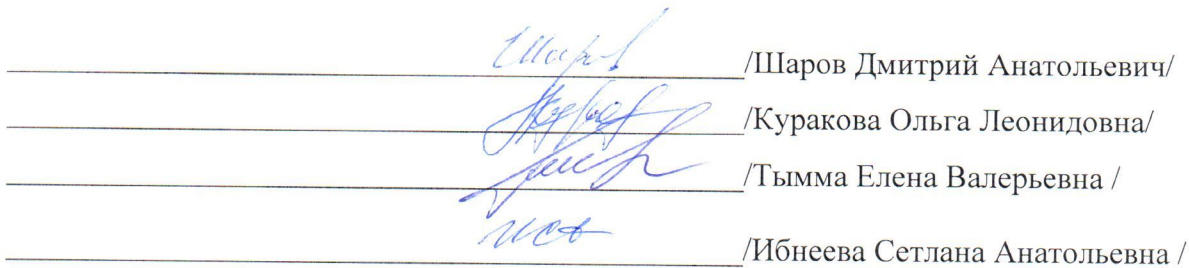 Шаров /Шаров Дмитрий Анатольевич/
/Куракова Ольга Леонидовна/
/Тымма Елена Валерьевна /
/Ибнеева Сетлана Анатольевна /